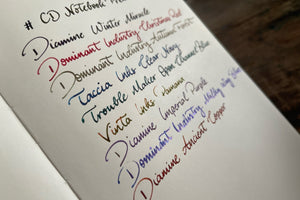 # CD Notebook
Diamine Winter Miracle
Dominant Industry Christmas Red
Dominant Industry Autumn Forest
Taccia Inks Clear Navy
Trouble Maker Open Channel Blue
Vinta Inks
Diamine Imperial Purple
Dominant Industry Milky Way
Diamine Ancient Copper